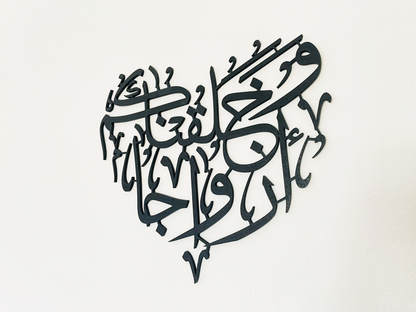 وخلقناكم
أزواجا